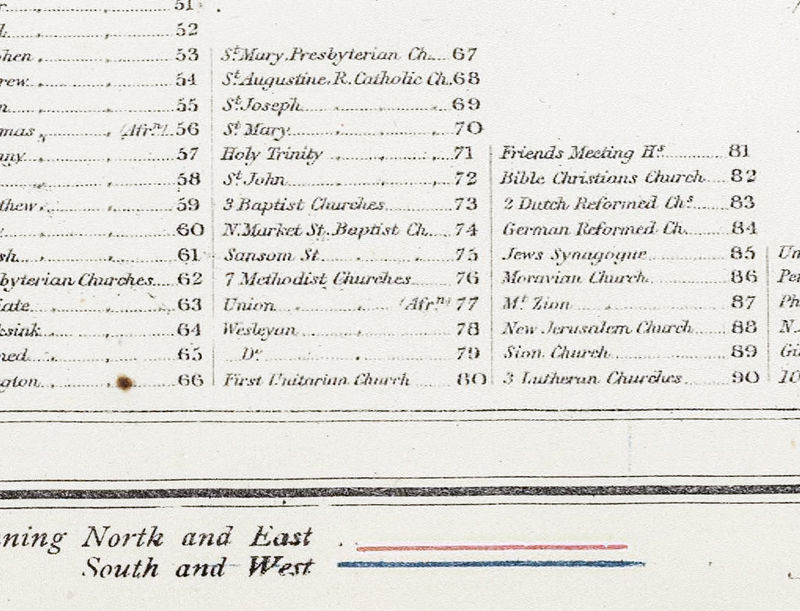 51
52
53
54
55
(Afrn) 56
57
58
59
60
61
Churches 62
63
64
65
66
St Mary Presbyterian Ch. 67
St Augustine, R. Catholic Ch. 68
St Joseph 69
St Mary 70
Holy Trinity 71
St John 72
3 Baptist Churches 73
N. Market St. Baptist Ch. 74
Sansom St. 75
7 Methodist Churches 76
Union (Afrn) 77
Wesleyan 78
Do 79
First Unitarian Church 80
Friends Meeting Hs 81
Bible Christians Church 82
2 Dutch Reformed Chs 83
German Reformed Ch. 84
Jews Synagogue 85
Moravian Church 86
Mt Zion 87
New Jerusalem Church 88
Sion Church 89
3 Lutheran Churches 90
North and East
South and West